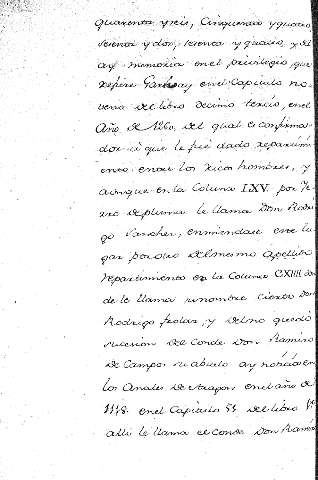 quarenta y seis, Cinquenta y quatro
setenta y dos, setenta y quatro, y del
ay memoria en el privilegio que
refiere Garibay en el Capitulo no-
veno del libro decimo tercio, en el
Año de 1260. del qual es confirma-
dor el que le fue dado repartimi
ento entre los ricos hombres, y
aunque en la Coluna LXV. por Ye
rro de pluma le llama Don Rodri
go Sanchez, enmiendase este lu
gar por otro del mesmo apellido
repartimiento en la Coluna CXIIII don
de le llama nombre cierto Don
Rodrigo frolaz, y del no quedó
sucesion del Conde Don Ramiro
de Campos su abuelo ay noticia en
los Anales de Aragon en el año de
1148. en el Capitulo 51 del libro
alli le llama el Conde Don Ramiro